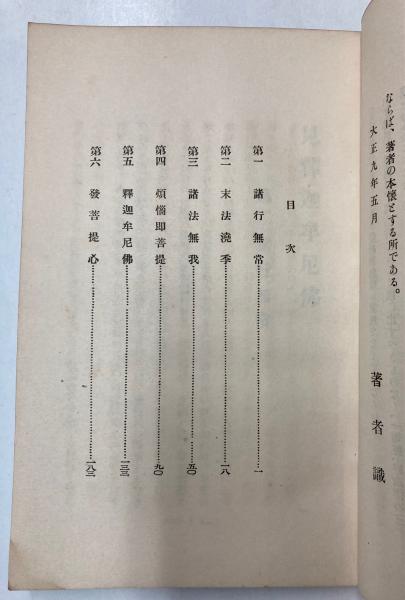 ならば、著者の本懷とする所である。
大正九年五月
著者識
目次
第一 諸行無常……一
第二 末法澆季……一八
第三 諸法無我……五〇
第四 煩惱即菩提……九〇
第五 釋迦牟尼佛……一三三
第六 發菩提心……一八二